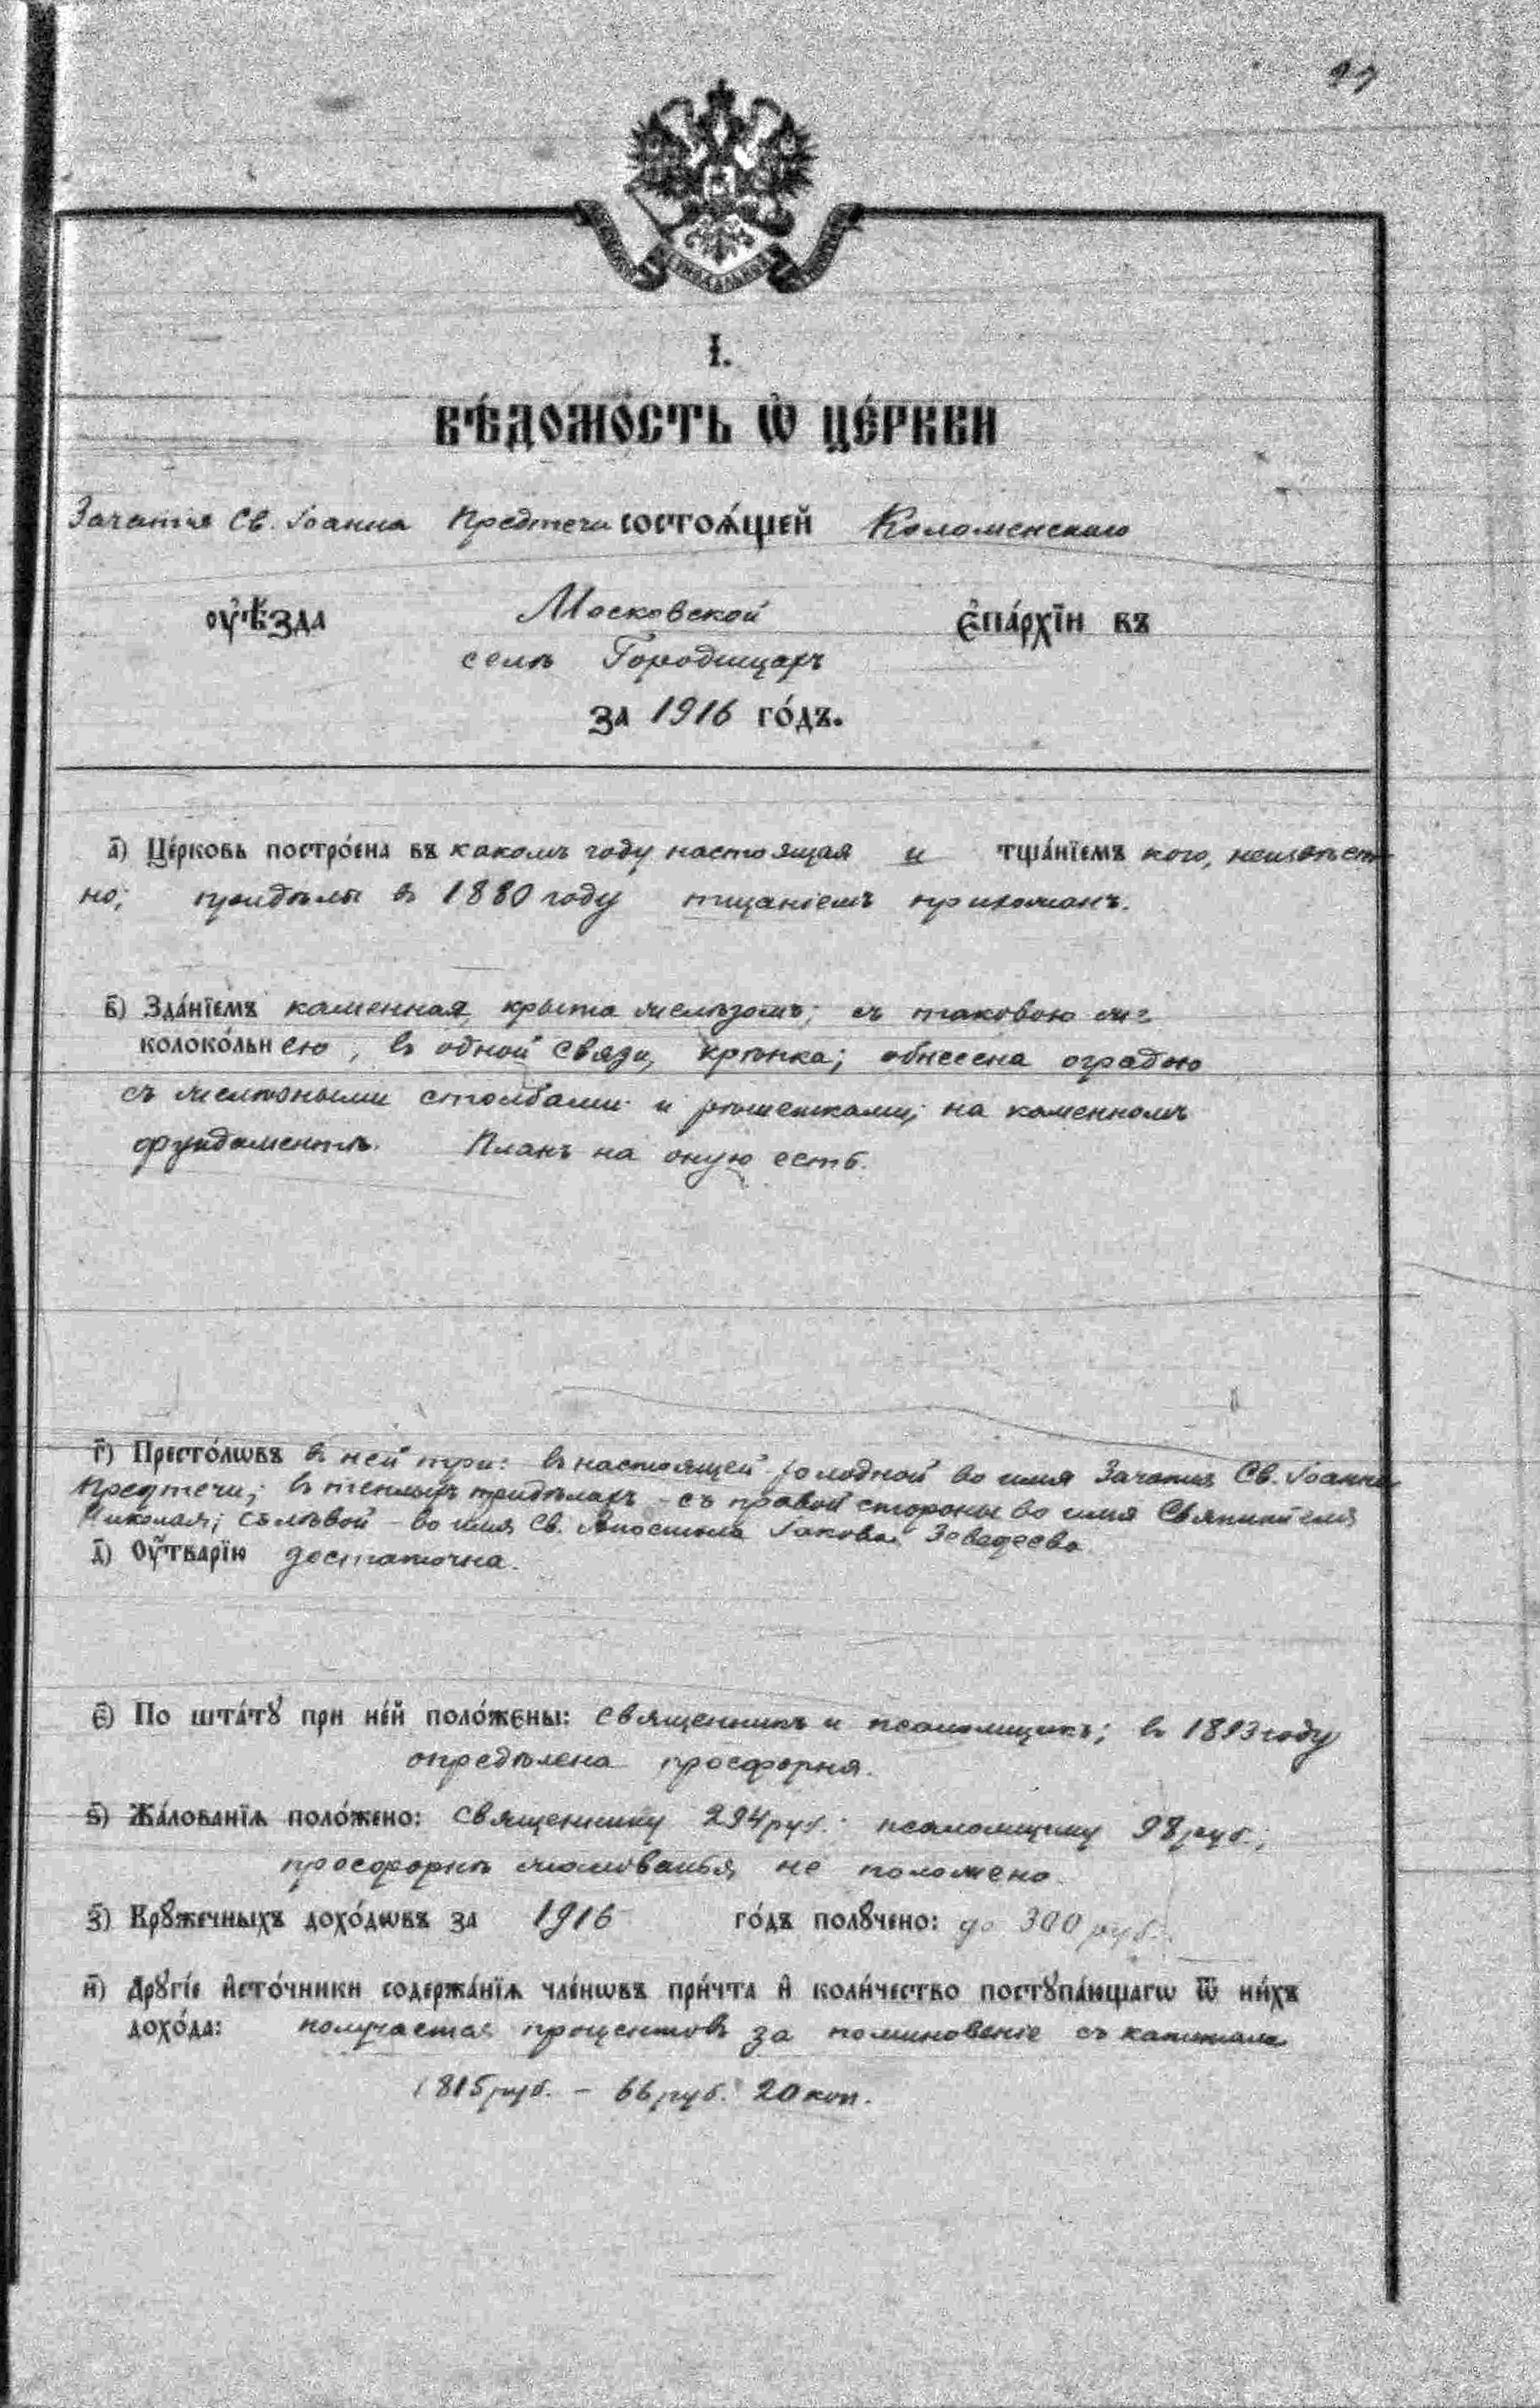 I.
ВѢ́ДОМО́СТЬ Ѡ҆ ЦЕ́РКВИ
Зачатія Св. Іоанна Предтечи состоѧ́щей Коломенскаго
ᲂу҆ѣ́зда Московской є҆па́рхїи въ
селѣ Городищахъ
за 1916 го́дъ.
а҃) Це́рковь постро́ена въ какомъ году настоящая и тща́нїемъ кого, неизвѣст-
но; придѣлы въ 1880 году тщаніемъ прихожанъ.
в҃) Зда́нїемъ каменная, крыта желѣзомъ; съ таковою же
колоко́льнею, въ одной связи, крѣпка; обнесена оградою
съ желѣзными столбами и рѣшетками, на каменномъ
фундаментѣ. Планъ на оную есть.
г҃) Престо́лѡвъ въ ней три: въ настоящей холодной во имя Зачатія Св. Іоанна
Предтечи; въ теплыхъ придѣлахъ - съ правой стороны во имя Святителя
Николая; съ лѣвой - во имя Св. Апостола Іакова Зеведеева.
д҃) Оу҆́тварїю достаточна.
є҃) По шта́тꙋ при не́й поло́жены: священникъ и псаломщикъ; въ 1893 году
опредѣлена просфорня.
ѕ҃) Жа́лованїѧ поло́жено: священнику 294 руб. псаломщику 98 руб.;
просфорнѣ жалованья не положено.
з҃) Крꙋжечныхъ дохо́дѡвъ за 1916 го́дъ полꙋчено: до 300 руб.
и҃) Дрꙋгі́е и҆сто́чники содержа́нїѧ чле́нѡвъ при́чта и҆ коли́чество постꙋпа́ющагѡ ѿ ни́хъ
дохо́да: получается процентовъ за поминовеніе съ капитала
1815 руб. - 66 руб. 20 коп.